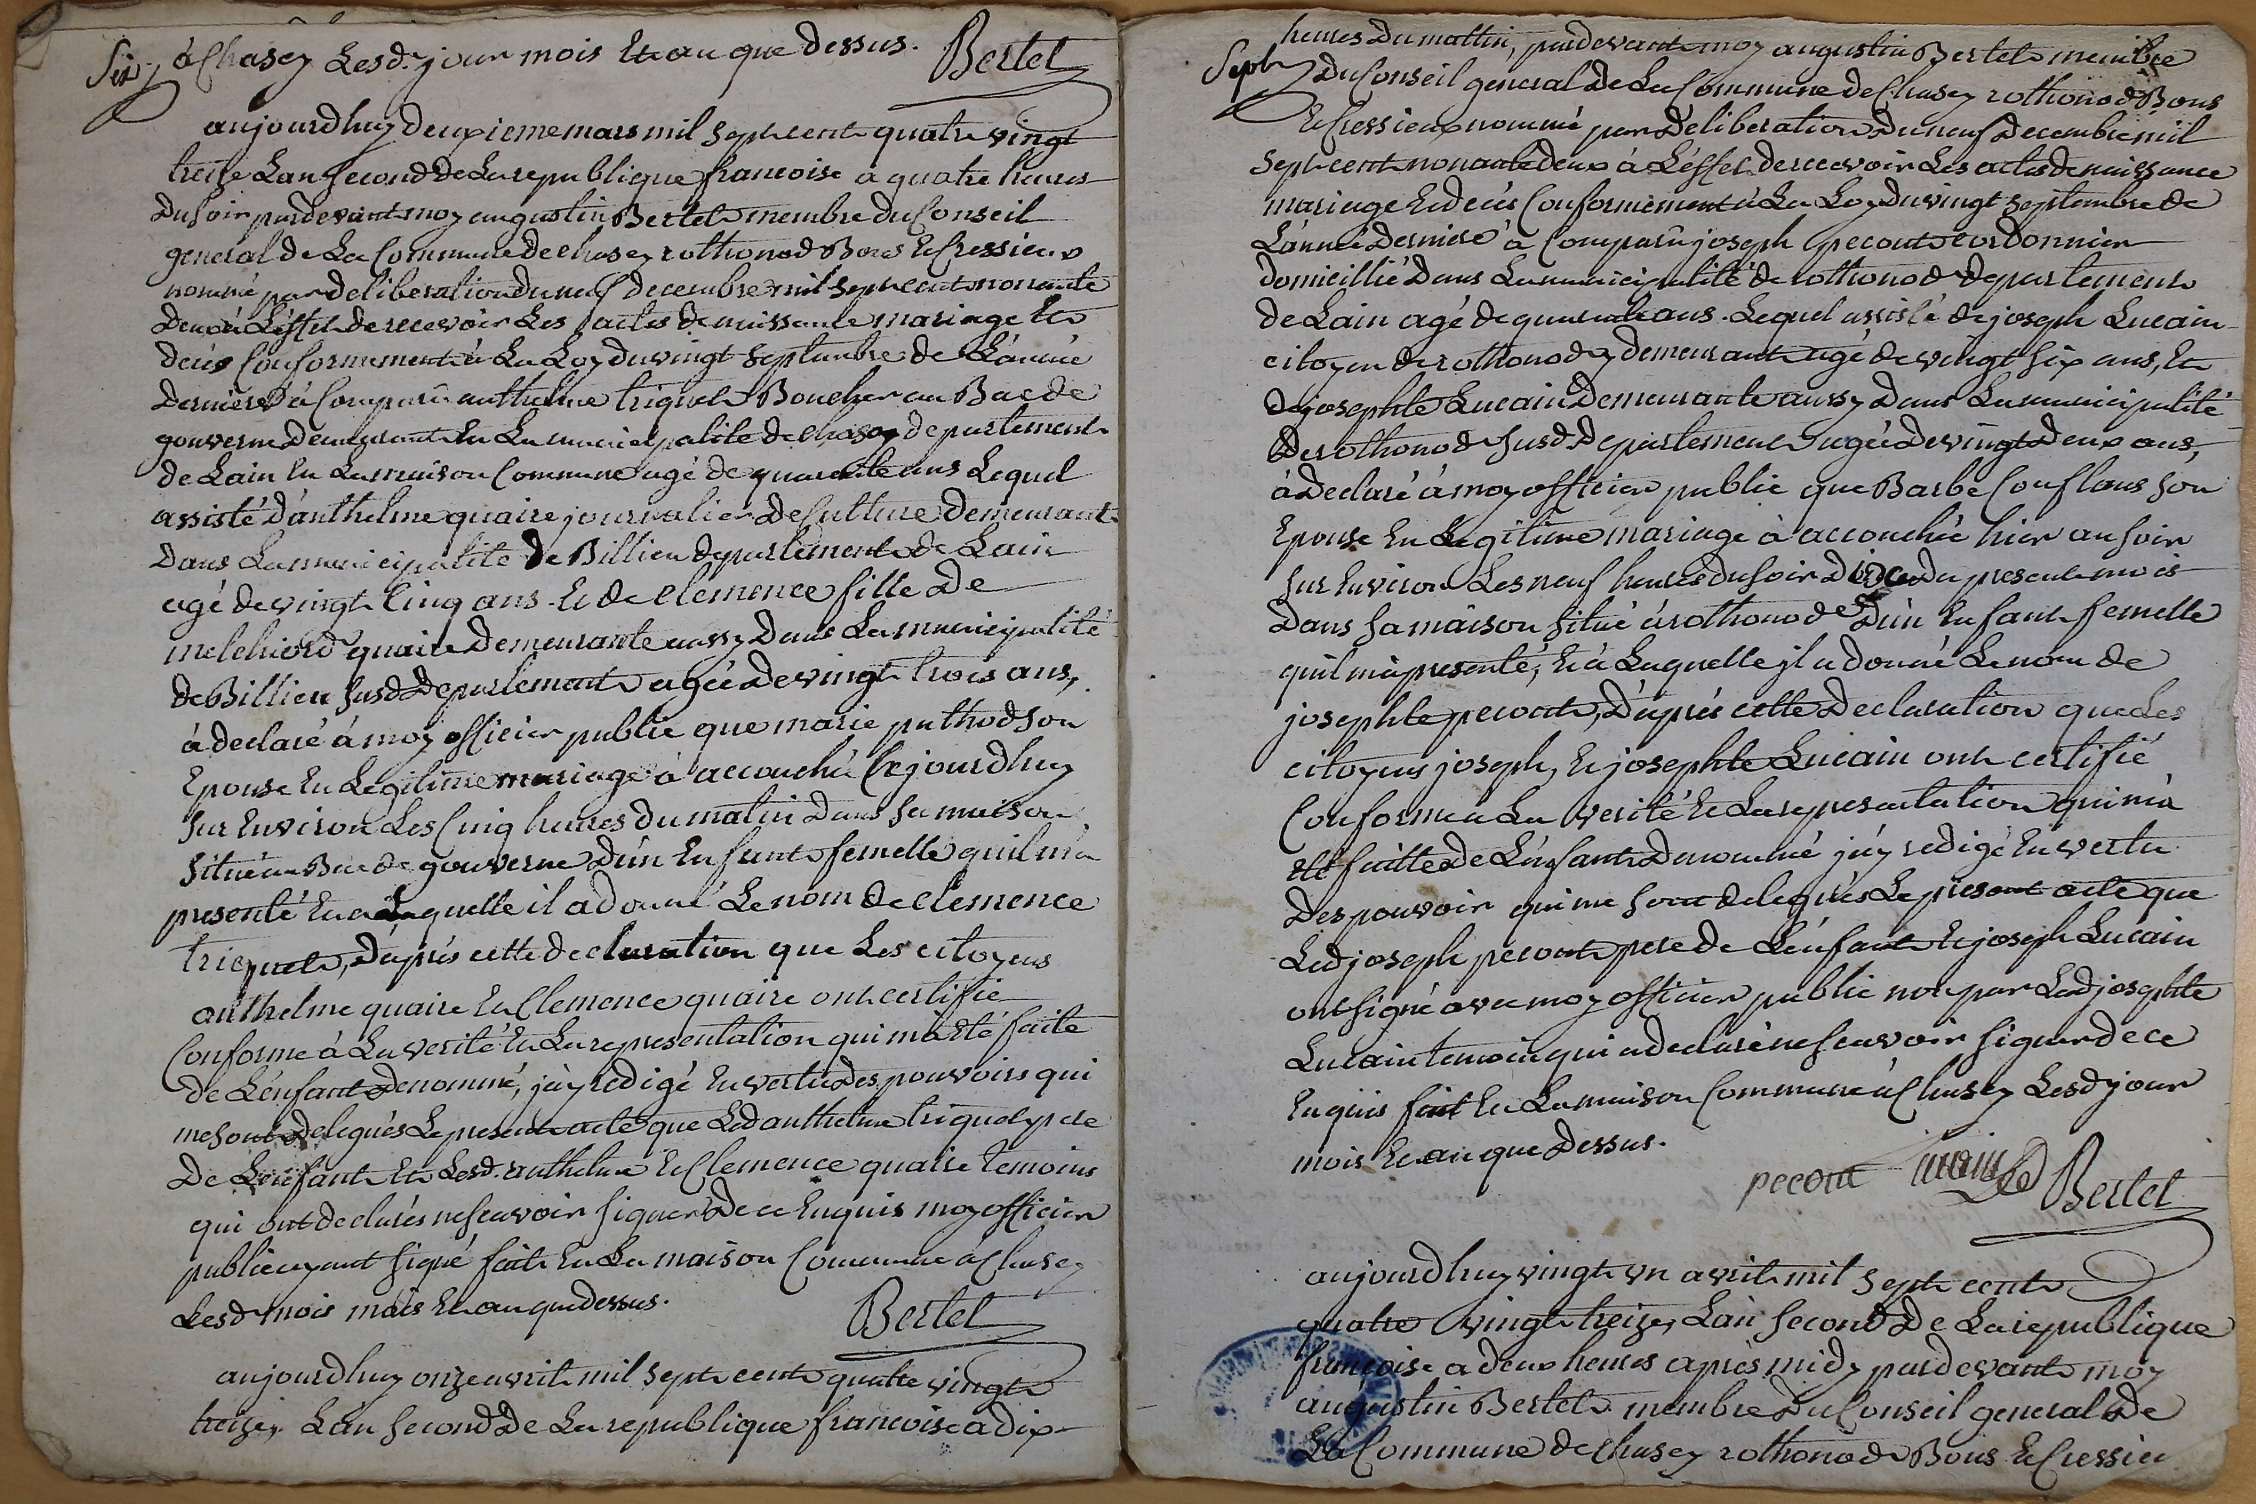 Six
à Chasey Lesd. jour mois Et an que dessus. Bertet
aujourdhuy deuxieme mars mil sept cent quatre vingt
treise Lan second de La republique francoise a quatre heures
du soir pardevant moy augustin Bertet membre du Conseil
general de La Commune de chasey rothonod Bons Et Cressieux
nommé par deliberation du neuf decembre mil sept cent nonante
deux à Léffet de recevoir Les actes de naissance mariage Et
decés Conformement à La Loy du vingt septembre de Lánnée
derniere à Comparû anthelme triquet Boucher au Bac de
gouverne demeurant En La municipalité de chasey departement
de Lain En La maison Commune agé de quarante ans Lequel
assisté dánthelme quaire journalier de Culture demeurant
dans La municipalité de Billieu departement de Lain
agé de vingt Cinq ans. Et de clemence fille de
melchiord quaire demeurante aussy dans La municipalité
de Billieu susd. departement agée de vingt trois ans,
à declaré à moy officier public que marie puthod son
Epouse En Legitime mariage à accouché Cejourdhuy
sur Environ Les Cinq heures du matin dans sa maison
située au Bac de gouverne dún Enfant femelle quil má
presenté Et à Laquelle il a donné Le nom de clemence
triquet, dáprés cette declaration que Les citoyens
anthelme quaire Et Clemence quaire ont certifié
Conforme à La verité Et La representation qui má Eté faite
de Lénfant denommé, jáy redigé En vertu des pouvoirs qui
me sont delegués Le present acte que Led anthelme triquet pere
de Lenfant Et Lesd. anthelme Et Clemence quaire temoins
qui ont declarés ne scavoir signer de ce Enquis moy officier
public ayant signé fait En La maison Commune à Chasey
Lesd. mois Et an que dessus.
Bertet
aujourdhuy onze avril mil sept cent quatre vingt
treize, Lan second de La republique francoise a dix
Sept
heures du mattin, pardevant moy augustin Bertet membre
du Conseil general de La Commune de Chasey rothonod Bons
Et Cressieux nommé par deliberation du neuf decembre mil
sept cent nonante deux à Léffet de recevoir Les actes de naissance
mariage Et decés Conformement à La Loy du vingt septembre de
Lánnée derniere à Comparû joseph pecout cordonnier
domicillié dans La municipalité de rothonod departement
de Lain agé de quarante ans. Lequel assisté de joseph Lucain
citoyen de rothonod y demeurant agé de vingt six ans, Et
de josephte Lucain demeurante aussy dans La municipalité
de rothonod susd. departement agée de vingt deux ans,
à declaré à moy officier public que Barbe Conflans son
Epouse En Legitime mariage à accouchée hier au soir
sur Environ Les neuf heures du soir dix du present mois
dans sa maison située à rothonod dún Enfant femelle
quil má presenté, Et à Laquelle jl a donné Le nom de
josephte pecout, dáprés cette declaration que Les
citoyens joseph, Et josephte Lucain ont certifié
Conforme à La verité Et La representation qui má
Eté faitte de Lénfant denommé jáy redigé En vertu
des pouvoir qui me sont delegués Le present acte que
Led joseph pecout pere de Lénfant Et joseph Lucain
ont signé avec moy officier public non par Lad josephte
Lucain temoin qui a declaré ne scavoir signer de ce
Enquis fait En La maison Commune à Chasey Lesd jour
mois Et an que dessus.
pecout Lucain Bertet
aujourdhuy vingt un avril mil sept cent
quatre vingt treize, Lan second de La republique
francoise a deux heures aprés midy pardevant moy
augustin Bertet membre du Conseil general de
La Commune de chasey rothonod Bons Et Cressieu